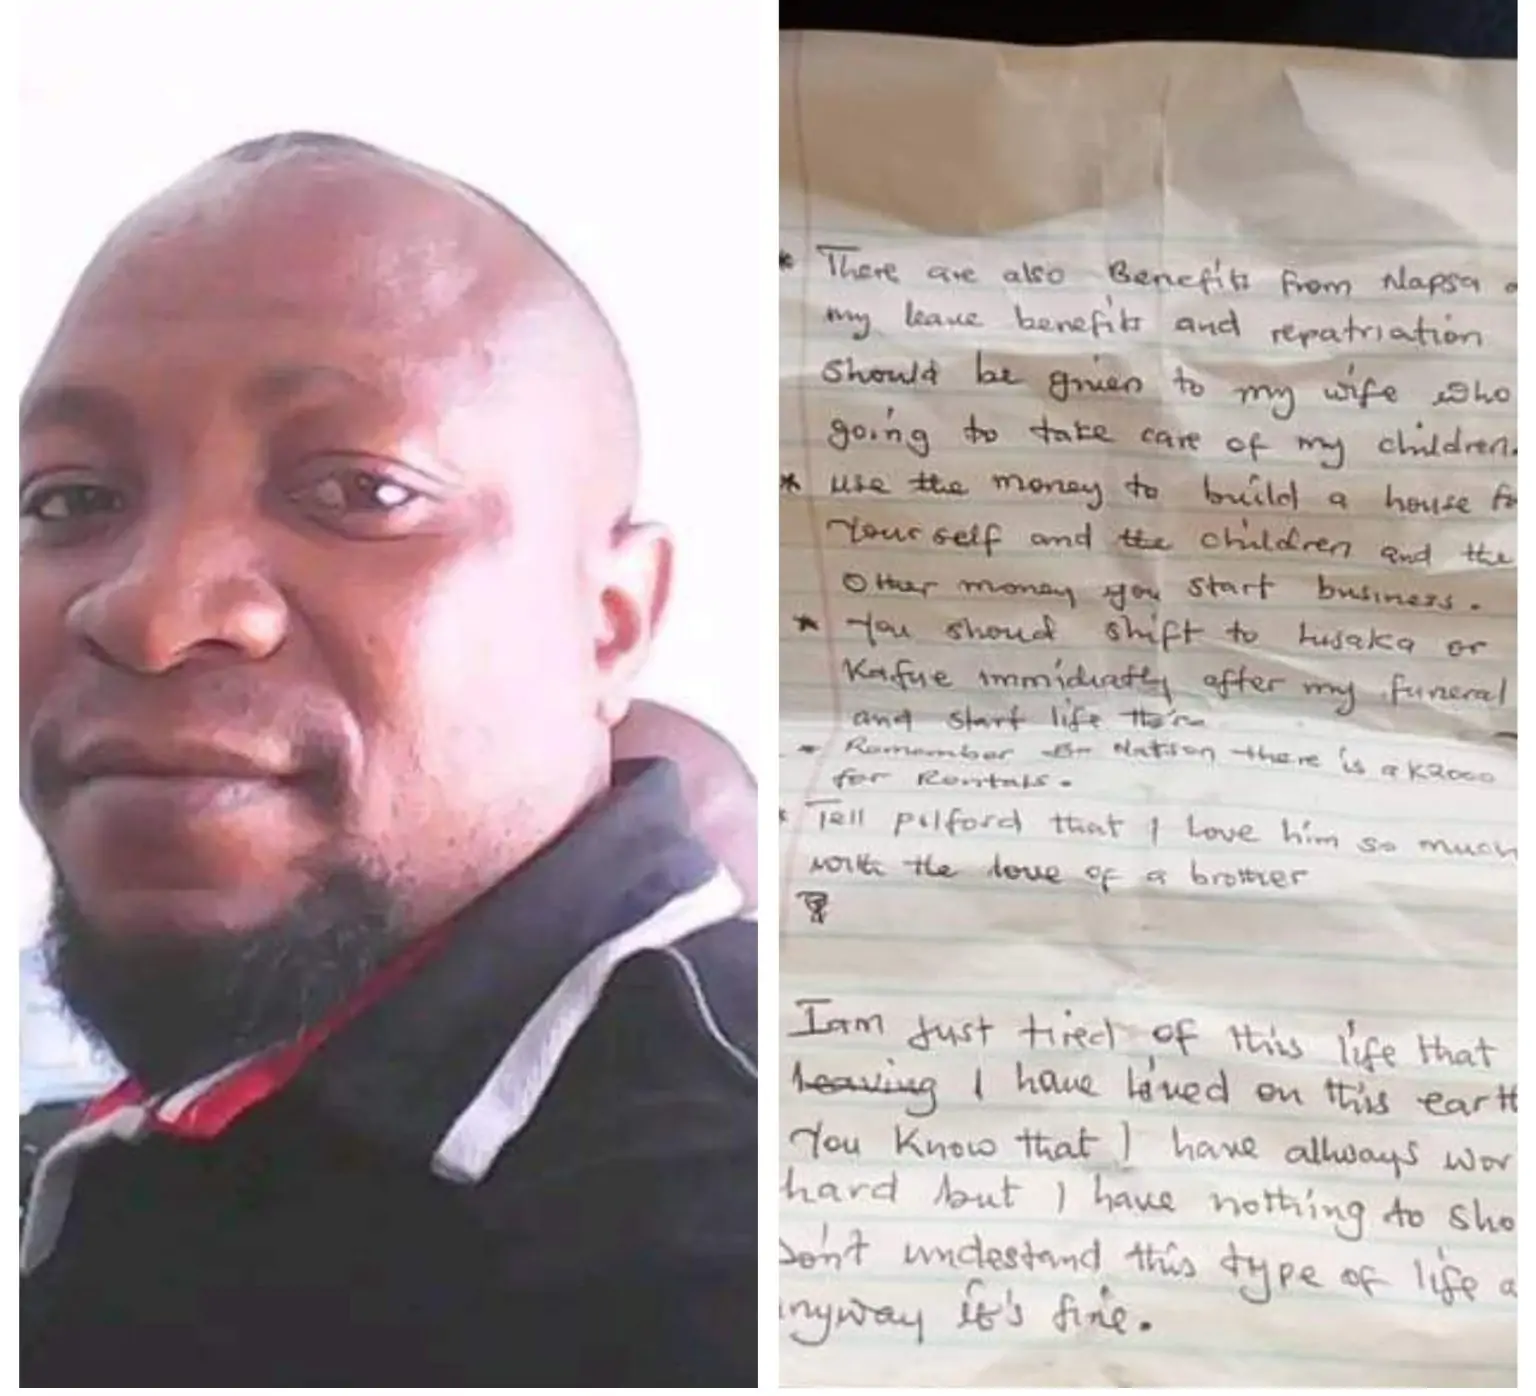 * There are also Benefits from Napsa
my leave benefits and repatriation
should be given to my wife who
going to take care of my children.
* use the money to build a house fo
Your self and the children and the
Other money you start business.
* You shoud shift to Lusaka or
Kafue immidiatly after my funeral
and start life there
* Remember Br Watson there is a K2000
for Rentals.
* Tell pilford that I Love him so much
with the love of a brother
I am just tired of this life that
leaving I have lived on this earth
You Know that I have allways wor
hard but I have nothing to sho
Don't undestand this type of life a
nyway it's fine.